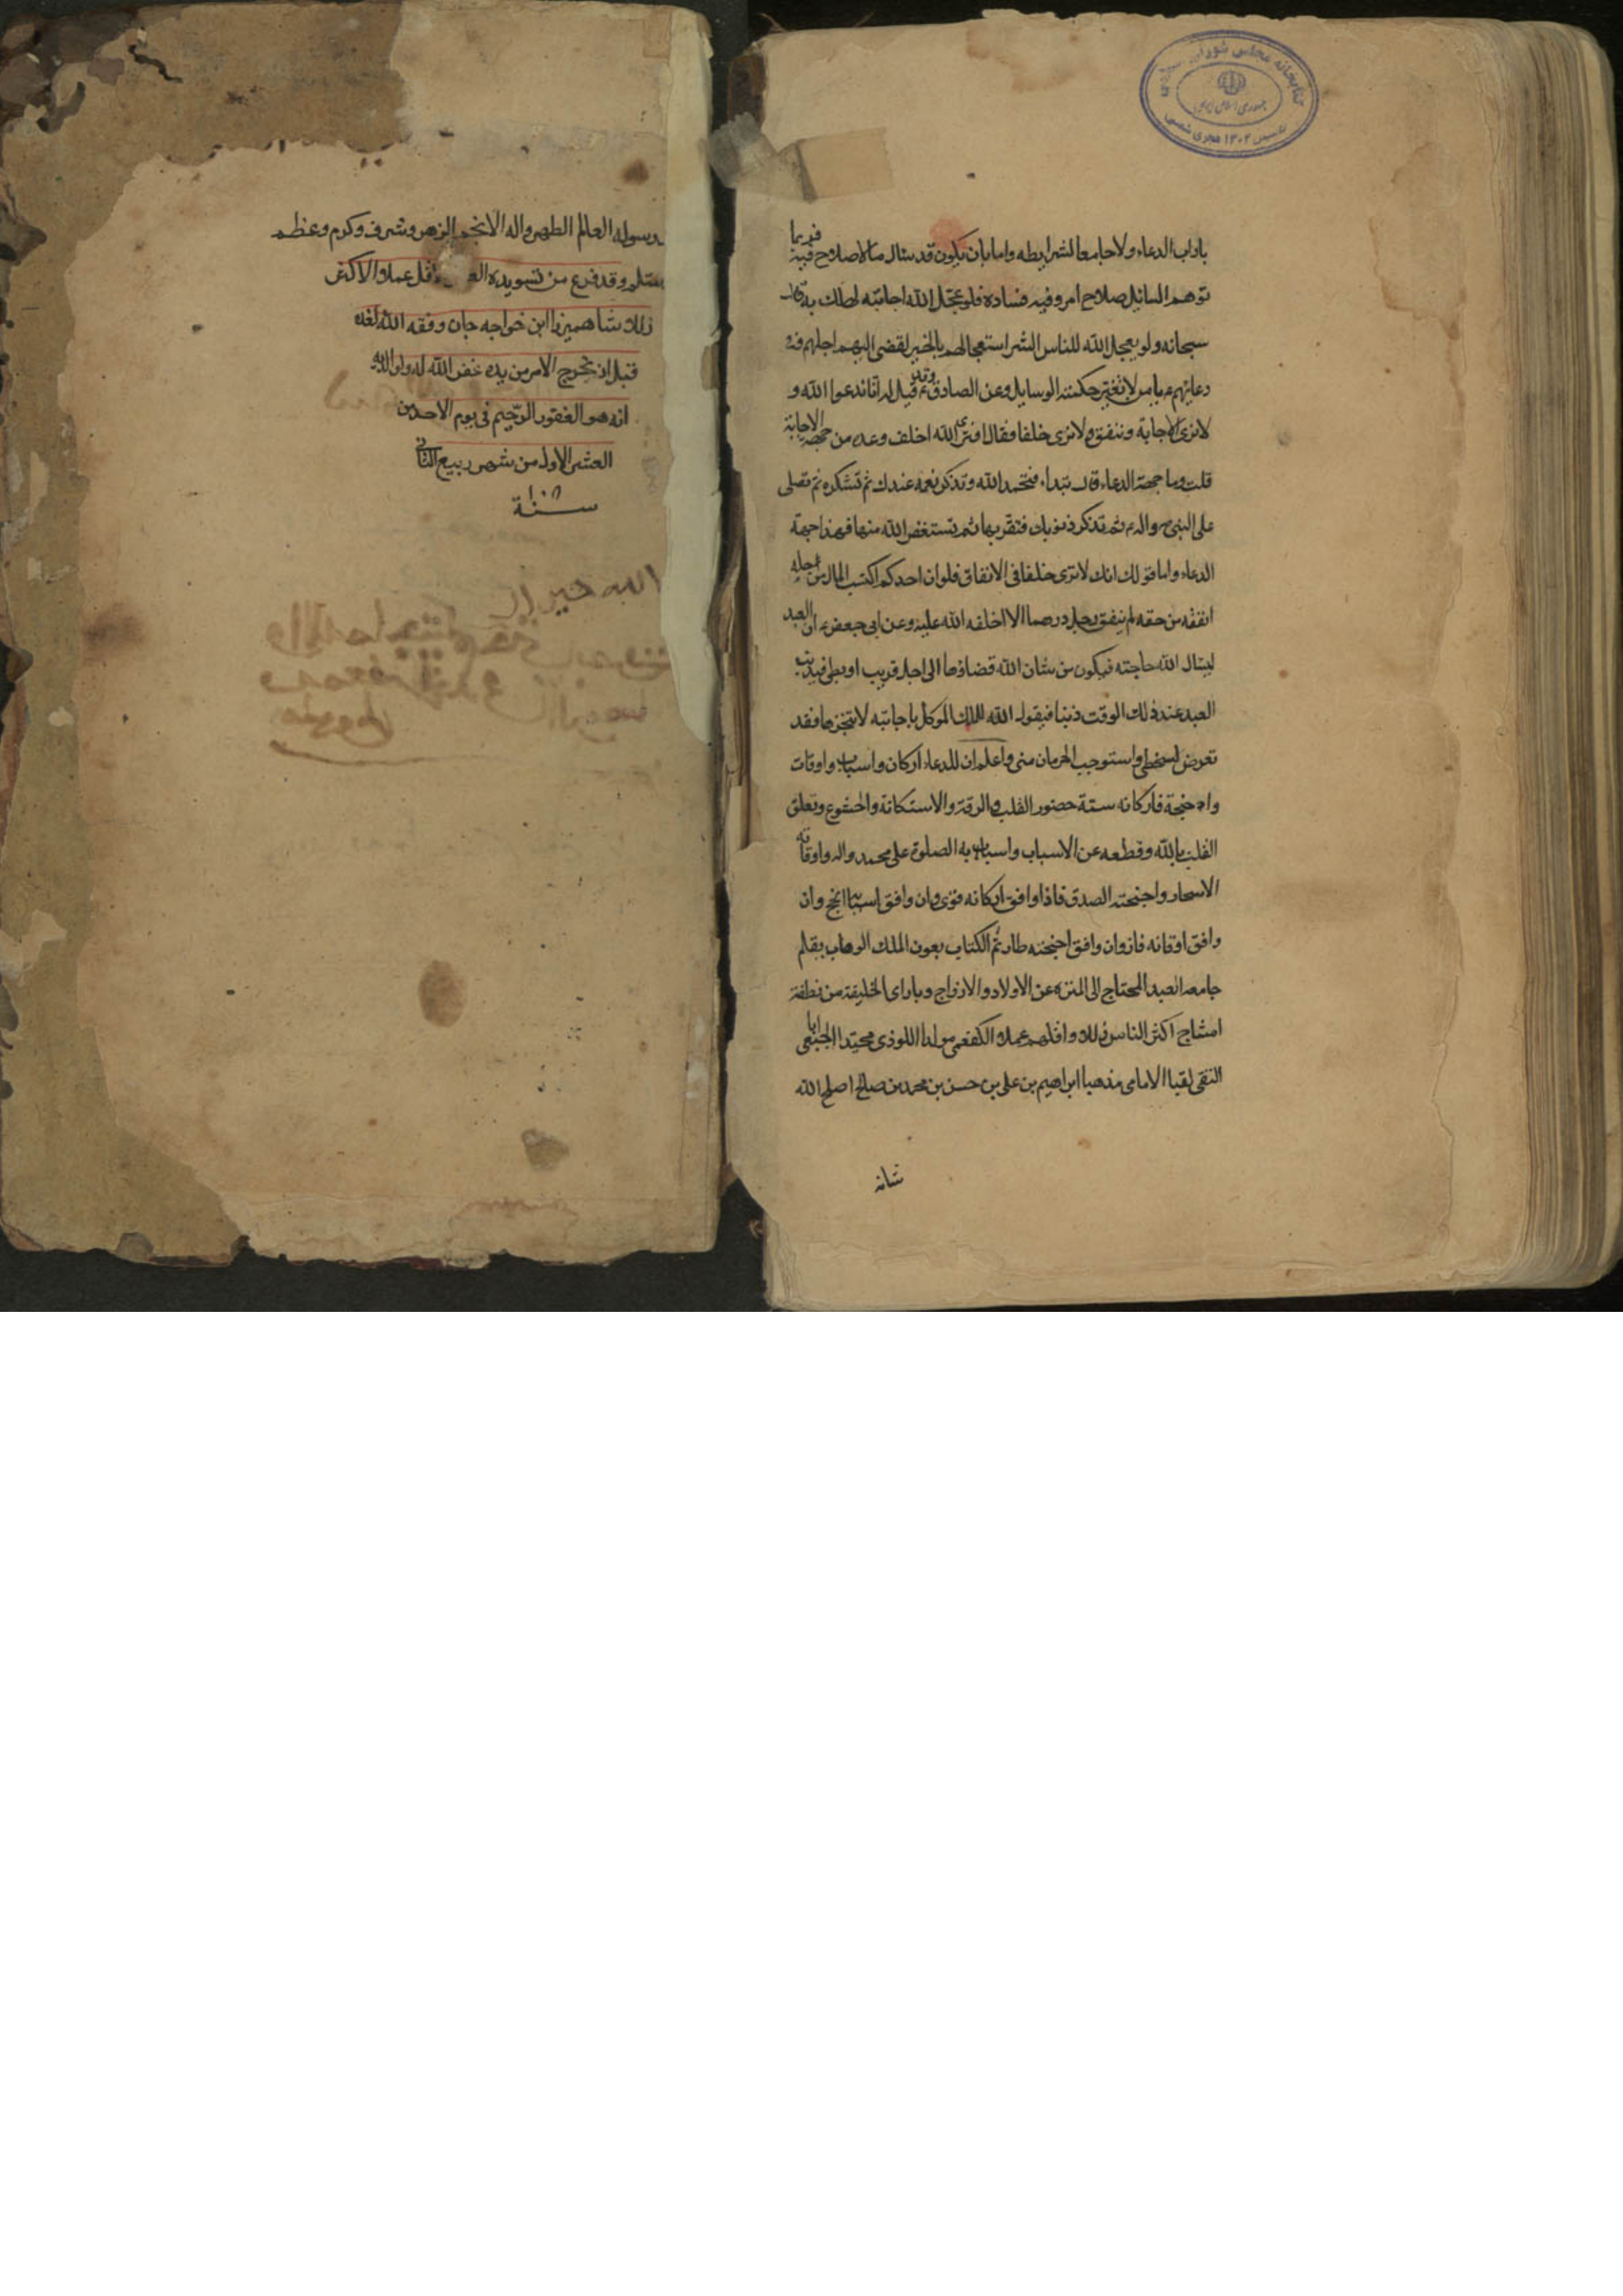 كتابخانه مجلس شورای اسلامی
جمهوری اسلامی ایران
تاسیس ۱۳۰۲ هجری شمسی
باداب الدعاء ولا جامعا لشرايطه واما بان يكون قد سال ما لا صلاح فيه فربما
توهم السائل صلاح امر وفيه فساده فلو عجل الله اجابته لهلك به قال
سبحانه ولو يعجل الله للناس الشر استعجالهم بالخير لقضى اليهم اجلهم وفي
دعائهم ع يا من لا تغير حكمته الوسايل وعن الصادق ع وقد قيل له انا ندعوا الله و
لا نرى الاجابة وننفق ولا نرى خلفا فقال افترى الله اخلف وعده من جهة الاجابة
قلت وما جهة الدعاء قال تبداء فتحمد الله وتذكر نعمه عندك ثم تشكره ثم تصلى
على النبي ص واله ع ثم تذكر ذنوبك فتقر بها ثم تستغفر الله منها فهذا جهة
الدعاء واما قولك انك لا ترى خلفا في الانفاق فلو ان احدكم اكتسب المال من حله
انفقه من حقه لم ينفق رجل درهما الا اخلفه الله عليه وعن ابي جعفر ع ان العبد
ليسال الله حاجته فيكون من شان الله قضاؤها الى اجل قريب او بطي فيذنب
العبد عند ذلك الوقت ذنبا فيقول الله للملك الموكل باجابته لا تنجزها فقد
تعرض لسخطي واستوجب الحرمان مني واعلم ان للدعاء اركان واسباب واوقات
واجنحة فاركانه ستة حضور القلب والرقة والاستكانة والخشوع وتعلق
القلب بالله وقطعه عن الاسباب واسبابه الصلوة على محمد واله واوقاته
الاسحار واجنحته الصدق فاذا وافق اركانه قوى وان وافق اسبابه انجح وان
وافق اوقاته فاز وان وافق اجنحته طار تم الكتاب بعون الملك الوهاب بقلم
جامعه العبد المحتاج الى المنزه عن الاولاد والازواج وباراى الخليقة من نطفة
امشاج اكثر الناس زللا واقلهم عملا الكفعمي مولدا اللوذي محتدا الجبعي ابا
التقى لقبا الامامى مذهبا ابراهيم بن على بن حسن بن محمد بن صالح اصلح الله
شانه
برسوله العالم الطهر واله الانجم الزهر وشرف وكرم وعظم
وسلم وقد فرغ من تسويده اقل عملا والاكثر
زللا شاهميرزا ابن خواجه جان وفقه الله لغده
قبل ان يخرج الامر من يده غفر الله له ولوالديه
انه هو الغفور الرحيم في يوم الاحد من
العشر الاول من شهر ربيع الثاني
سنة